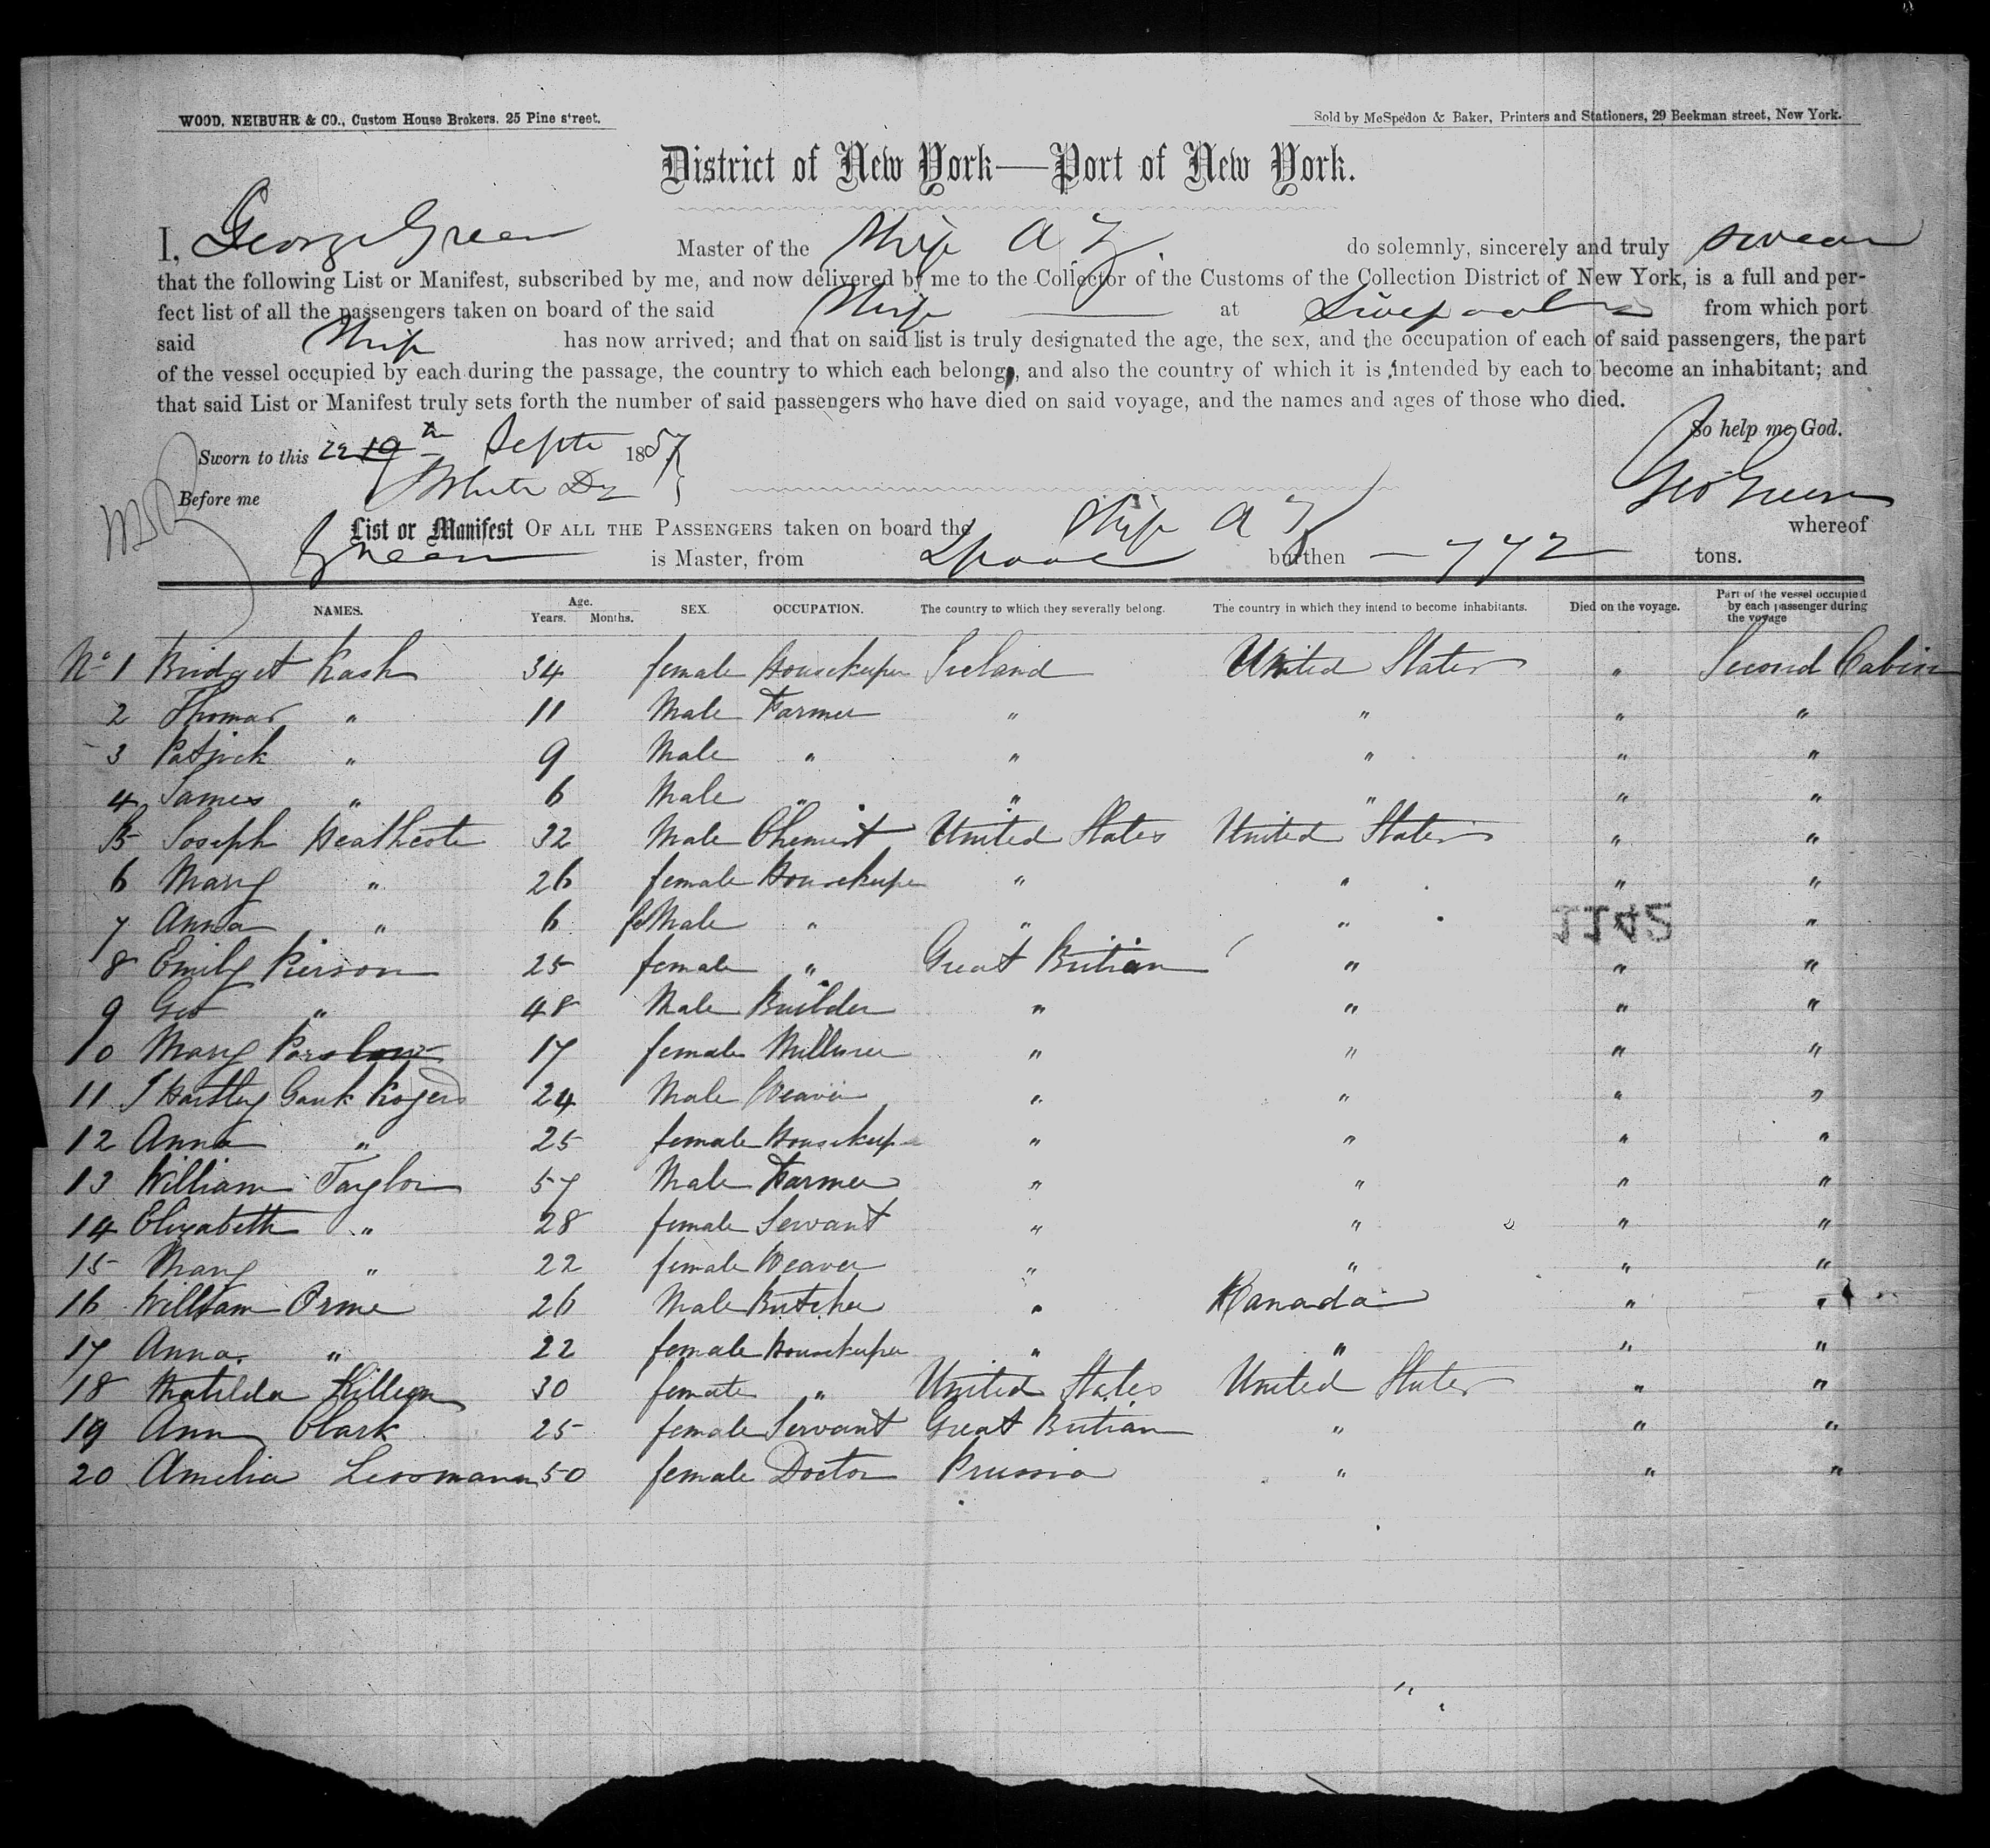 WOOD, NEIBUHR & CO., Custom House Brokers. 25 Pine street.
Sold by McSpedon & Baker, Printers and Stationers, 29 Beekman street, New York.
District of New York—Port of New York.
I, George Green Master of the Ship A Z do solemnly, sincerely and truly swear
that the following List or Manifest, subscribed by me, and now delivered by me to the Collector of the Customs of the Collection District of New York, is a full and per-
fect list of all the passengers taken on board of the said Ship at Liverpool from which port
said Ship has now arrived; and that on said list is truly designated the age, the sex, and the occupation of each of said passengers, the part
of the vessel occupied by each during the passage, the country to which each belongs, and also the country of which it is intended by each to become an inhabitant; and
that said List or Manifest truly sets forth the number of said passengers who have died on said voyage, and the names and ages of those who died.
So help me God.
Sworn to this 22 19 th Septr 1857
Before me White
Geo Green
List or Manifest OF ALL THE PASSENGERS taken on board the Ship A Z whereof
Green is Master, from Lpool burthen — 772 tons.
NAMES. Age. Years. Months. SEX. OCCUPATION. The country to which they severally belong. The country in which they intend to become inhabitants. Died on the voyage. Part of the vessel occupied by each passenger during the voyage
No 1 Bridget Kash 34 female Housekeeper Ireland United States " Second Cabin
2 Thomas " 11 Male Farmer " " " "
3 Patrick " 9 Male " " " " "
4 James " 6 Male " " " " "
5 Joseph Heathcote 32 Male Chemist United States United States " "
6 Mary " 26 female Housekeeper " " " "
7 Anna " 6 feMale " " " "
1142
8 Emily Pierson 25 female " Great Britian " " "
9 Geo " 48 Male Builder " " " "
10 Mary Parslow 17 female Milliner " " " "
11 J Hartley Gank Rogers 24 Male Weaver " " " "
12 Anna " 25 female Housekeep " " " "
13 William Taylor 57 Male Farmer " " " "
14 Elizabeth " 28 female Servant " " " "
15 Mary " 22 female Weaver " " " "
16 William Orme 26 Male Butcher " Kanada " "
17 Anna " 22 female Housekeeper " " " "
18 Matilda Killegn 30 female " United States United States " "
19 Ann Clark 25 female Servant Great Britian " " "
20 Amelia Lessmann 50 female Doctor Prussia " " "